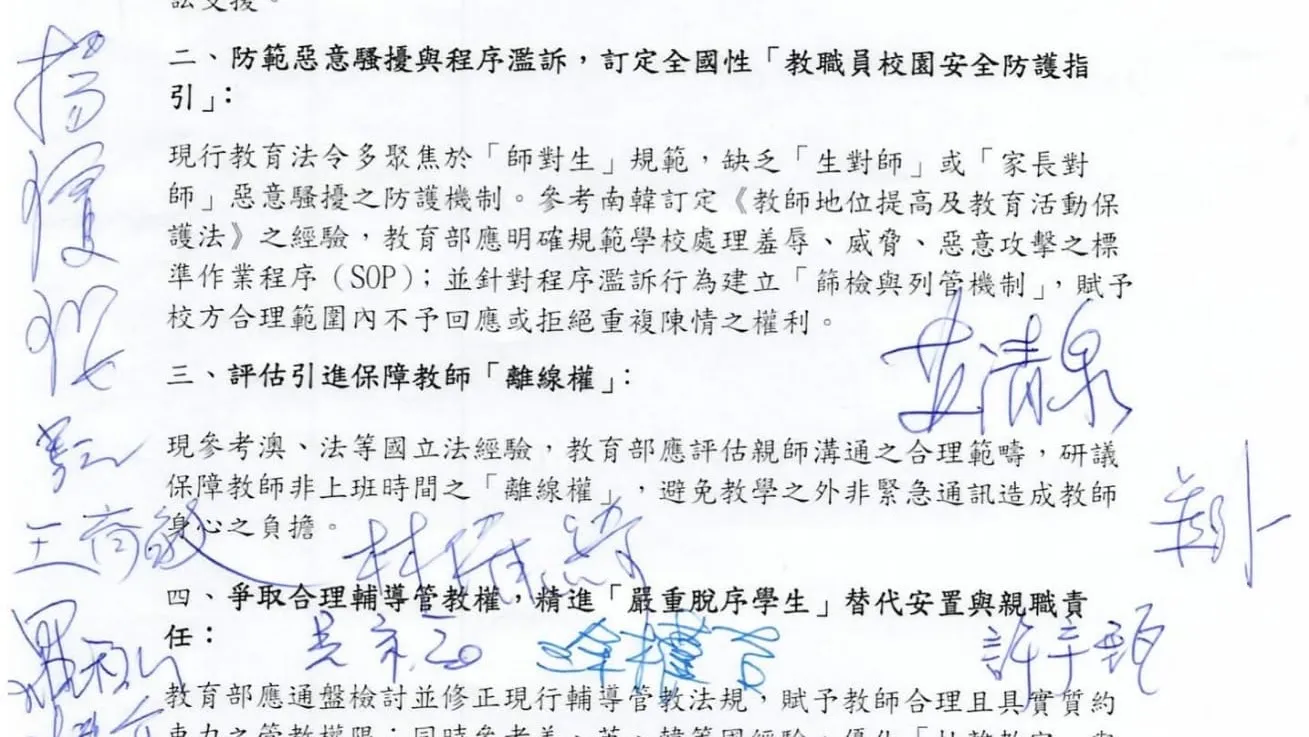 二、防範惡意騷擾與程序濫訴，訂定全國性「教職員校園安全防護指
引」：
現行教育法令多聚焦於「師對生」規範，缺乏「生對師」或「家長對
師」惡意騷擾之防護機制。參考南韓訂定《教師地位提高及教育活動保
護法》之經驗，教育部應明確規範學校處理羞辱、威脅、惡意攻擊之標
準作業程序（SOP）；並針對程序濫訴行為建立「篩檢與列管機制」，賦予
校方合理範圍內不予回應或拒絕重複陳情之權利。
三、評估引進保障教師「離線權」：
現參考澳、法等國立法經驗，教育部應評估親師溝通之合理範疇，研議
保障教師非上班時間之「離線權」，避免教學之外非緊急通訊造成教師
身心之負擔。
王育敏
四、爭取合理輔導管教權，精進「嚴重脫序學生」替代安置與親職責
任：
許宇甄
教育部應通盤檢討並修正現行輔導管教法規，賦予教師合理且具實質約
束力之管教權限；同時參考美、英、韓等國經驗，優化「